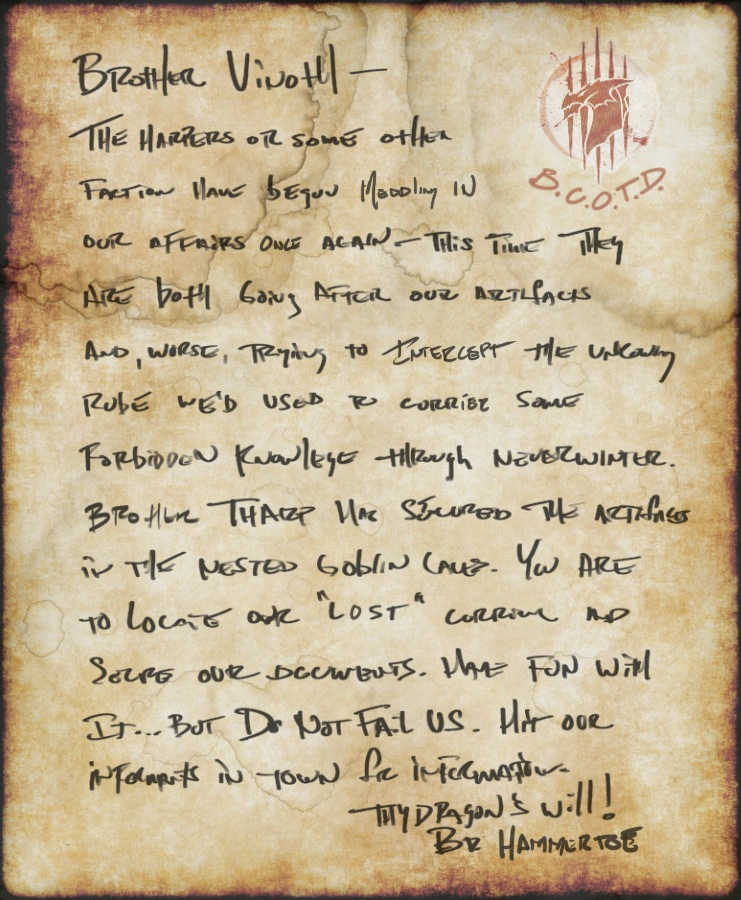 Brother Vinohl —
B.C.O.T.D.
The Harpers or some other
faction have begun meddling in
our affairs once again — this time they
are both going after our artifacts
and, worse, trying to intercept the unknowing
rube we'd used to courier some
forbidden knowledge through Neverwinter.
Brother Tharp has secured the artifacts
in the nested goblin caves. You are
to locate our "lost" courier and
secure our documents. Have fun with
it... but do not fail us. Hit our
informants in town for information.
Thy Dragon's will!
Br Hammertoe